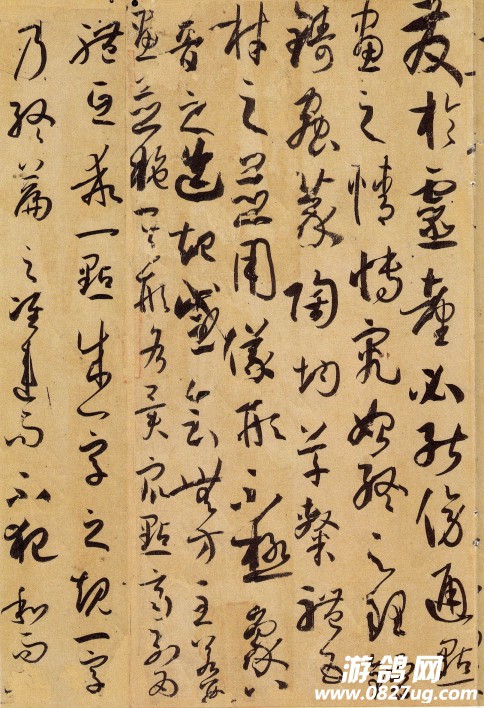 發於靈臺必能傍通點
畫之情博究始終之理鎔
鑄蟲篆陶均草隸體五
材之並用儀形不極象八
音之迭起感會無方至若數
畫並施其形各異衆點齊列為
體互乖一點成一字之規一字
乃終篇之准違而不犯和而
游鸽网
www.0827ug.com